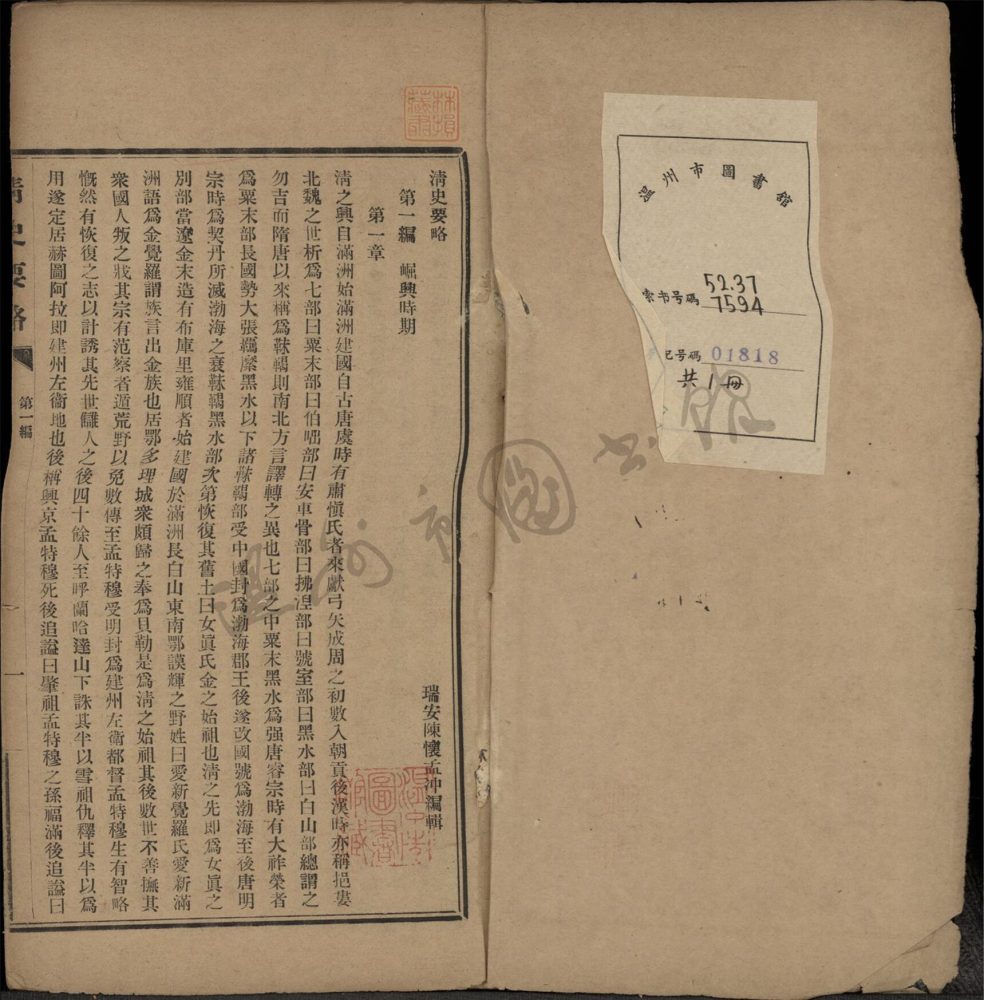 溫州市圖書館
索書号碼 52.37
7594
記号碼 01818
共1冊
溫州市圖書館
林損
藏書
清史要略
第一編 崛興時期
瑞安陳懷孟沖編輯
第一章
清之興自滿洲始滿洲建國自古唐虞時有肅愼氏者來獻弓矢成周之初數入朝貢後漢時亦稱挹婁
北魏之世析爲七部曰粟末部曰伯咄部曰安車骨部曰拂湼部曰號室部曰黑水部曰白山部總謂之
勿吉而隋唐以來稱爲靺鞨則南北方言譯轉之異也七部之中粟末黑水爲强唐睿宗時有大祚榮者
爲粟末部長國勢大張羈縻黑水以下諸靺鞨部受中國封爲渤海郡王後遂改國號爲渤海至後唐明
宗時爲契丹所滅渤海之衰靺鞨黑水部次第恢復其舊土曰女眞氏金之始祖也淸之先即爲女眞之
別部當遼金末造有布庫里雍順者始建國於滿洲長白山東南鄂謨輝之野姓曰愛新覺羅氏愛新滿
洲語爲金覺羅謂族言出金族也居鄂多理城衆頗歸之奉爲貝勒是爲淸之始祖其後數世不善撫其
衆國人叛之戕其宗有范察者遁荒野以免數傳至孟特穆受明封爲建州左衛都督孟特穆生有智略
慨然有恢復之志以計誘其先世讎人之後四十餘人至呼蘭哈達山下誅其半以雪祖仇釋其半以爲
用遂定居赫圖阿拉即建州左衛地也後稱興京孟特穆死後追謚曰肇祖孟特穆之孫福滿後追謚曰
清史要略
第一編
一